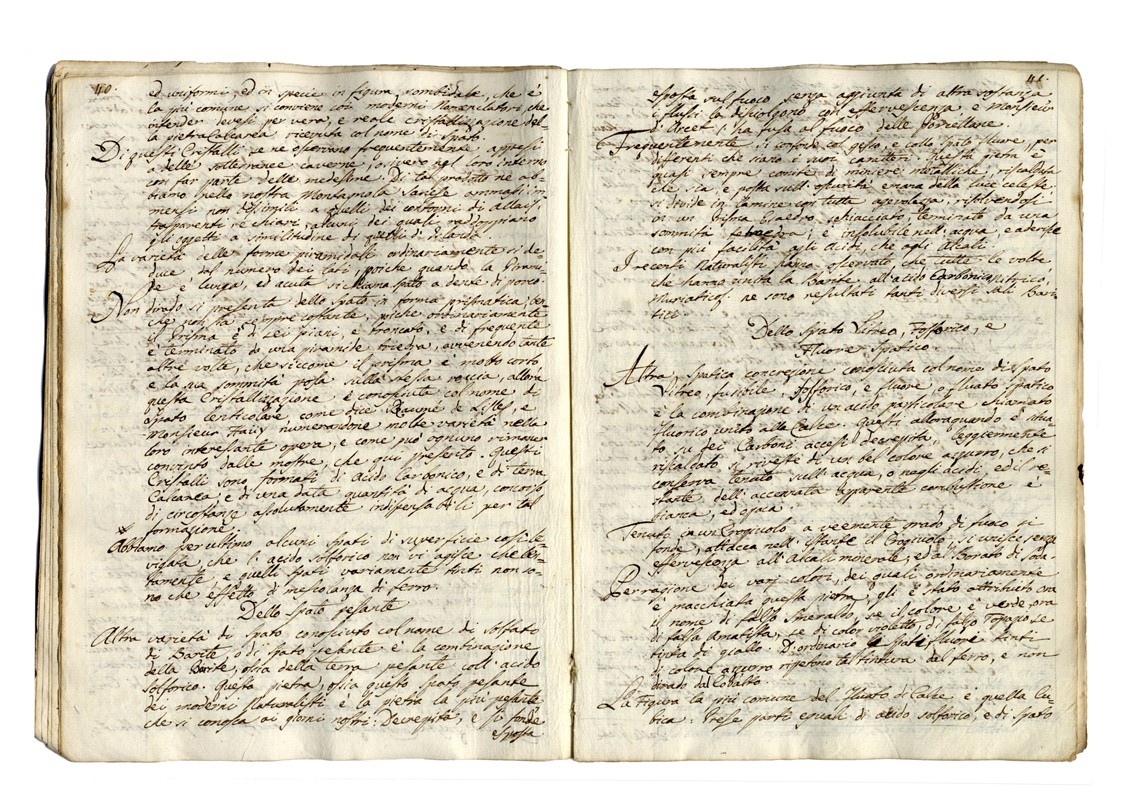 40.
ed uniformi, ed in specie in figura romboidale, che è
la più comune si conviene coi moderni Nomenclatori che
intender devesi per vera, e reale cristallizzazione del-
la pietra calcarea ricevuta col nome di Spato
Di questi Cristalli se ne osservano frequentemente appesi
a delle sotterranee caverne, ossivero nel loro interno
con far parte delle medesime. Di tal prodotto ne ab-
biamo nella nostra Montagnola Sanese ammassi im-
mensi non dissimili a quelli dei contorni di
trasparenti e chiari, alcuni dei quali raddoppiano
gli oggetti a similitudine di quelli di Islanda
La varietà delle forme piramidali ordinariamente si de-
duce dal numero dei lati, poiche quando la Pirami-
de è lunga, ed acuta si chiama Spato a dente di porco
Non dirado si presenta dello Spato in forma prismatica, ben-
che non sia sempre costante, poiche ordinariamente
il Prisma è di sei piani, e troncato, e di frequente
è terminato da una piramide triedra, avvenendo tante
altre volte, che siccome il prisma è molto corto
e la sua sommità posa sulla stessa roccia, allora
questa Cristallizzazione è conosciuta col nome di
Spato lenticolare come dice Roumé de Lisle, e
Monsieur Haüy numerandone molte varietà nella
loro interessante opera, e come può ognuno rimaner
convinto dalle mostre, che qui presento. Questi
Cristalli sono formati di acido Carbonico, e di terra
Calcarea, e di una data quantità di acqua, concorso
di circostanze assolutamente indispensabili per tal
formazione.
Abbiamo per ultimo alcuni spati di superficie così le-
vigata, che l'acido solforico non vi agisce che len-
tamente, e quelli Spati variamente tinti non so-
no che effetto di mescolanza di ferro.
Dello Spato pesante
Altra varietà di Spato conosciuto col nome di Solfato
di Barite, o di Spato pesante è la combinazione
della Barite, ossia della terra pesante coll'acido
solforico. Questa pietra, ossia questo Spato pesante
dei moderni Naturalisti è la pietra la più pesante
che si conosca ai giorni nostri. Decrepita, e si fonde
esposta
41.
esposta sul fuoco senza aggiunta di altra sostanza
i flussi la disciolgono con effervescenza e Monsieur
d'Arcet l'ha fusa al fuoco delle Porcellane.
Frequentemente si confonde col gesso, e collo Spato fluore, per
differenti che siano i suoi caratteri. Questa pietra è
quasi sempre contire di miniere metalliche, riscaldata
che sia, e posta sull'oscurità emana della luce celeste
si divide in lamine con tutta agevolezza, risolvendosi
in un Prisma Esaedro, schiacciato, terminato da una
sommità, è insolubile nell'acqua, e aderisce
con più facilità agli acidi, che agli Alcali
I recenti Naturalisti hanno osservato che tutte le volte
che hanno unita la Barite all'acido Carbonico, Nitrico,
Muriatico &. ne sono resultati tanti diversi sali Bari-
tici
Dello Spato Vitreo, Fosforico, e
Fluore Spatico.
Altra Spatica concrezione conosciuta col nome di Spato
Vitreo, fusibile, Fosforico è fluore, o fluato Spatico
è la combinazione di un acido particolare chiamato
Fluorico unito alla Calce. Questi alloraquando è situa-
to su dei Carboni accesi decrepita, leggermente
riscaldato si riveste di un bel colore azzurro, che si
conserva tenuto sull'acqua, o negli acidi, ed il re-
stante dell'accennata apparente combustione è
bianca, ed opaca
Tenuto in un Crogiuolo a veemente grado di fuoco si
fonde, attacca nell'istante il Crogiuolo, si unisce, senza
effervescenza all'Alcali minerale, e al Borato di soda.
Per ragione dei varj colori, dei quali ordinariamente
è macchiata questa pietra, gli è stato attribuito ora
il nome di falso Smeraldo, se il colore è verde, ora
di falsa Amatista, se di color violetto, di falso Topazo se
tinta di giallo. D'ordinario i Spati fluore tinti
di colore azzurro ripetono la tintura del ferro, e non
dirado dal Cobalto.
La figura la più comune del Fluato di Calce è quella Cu-
bica. Prese parti eguali di acido solforico, e di Spato